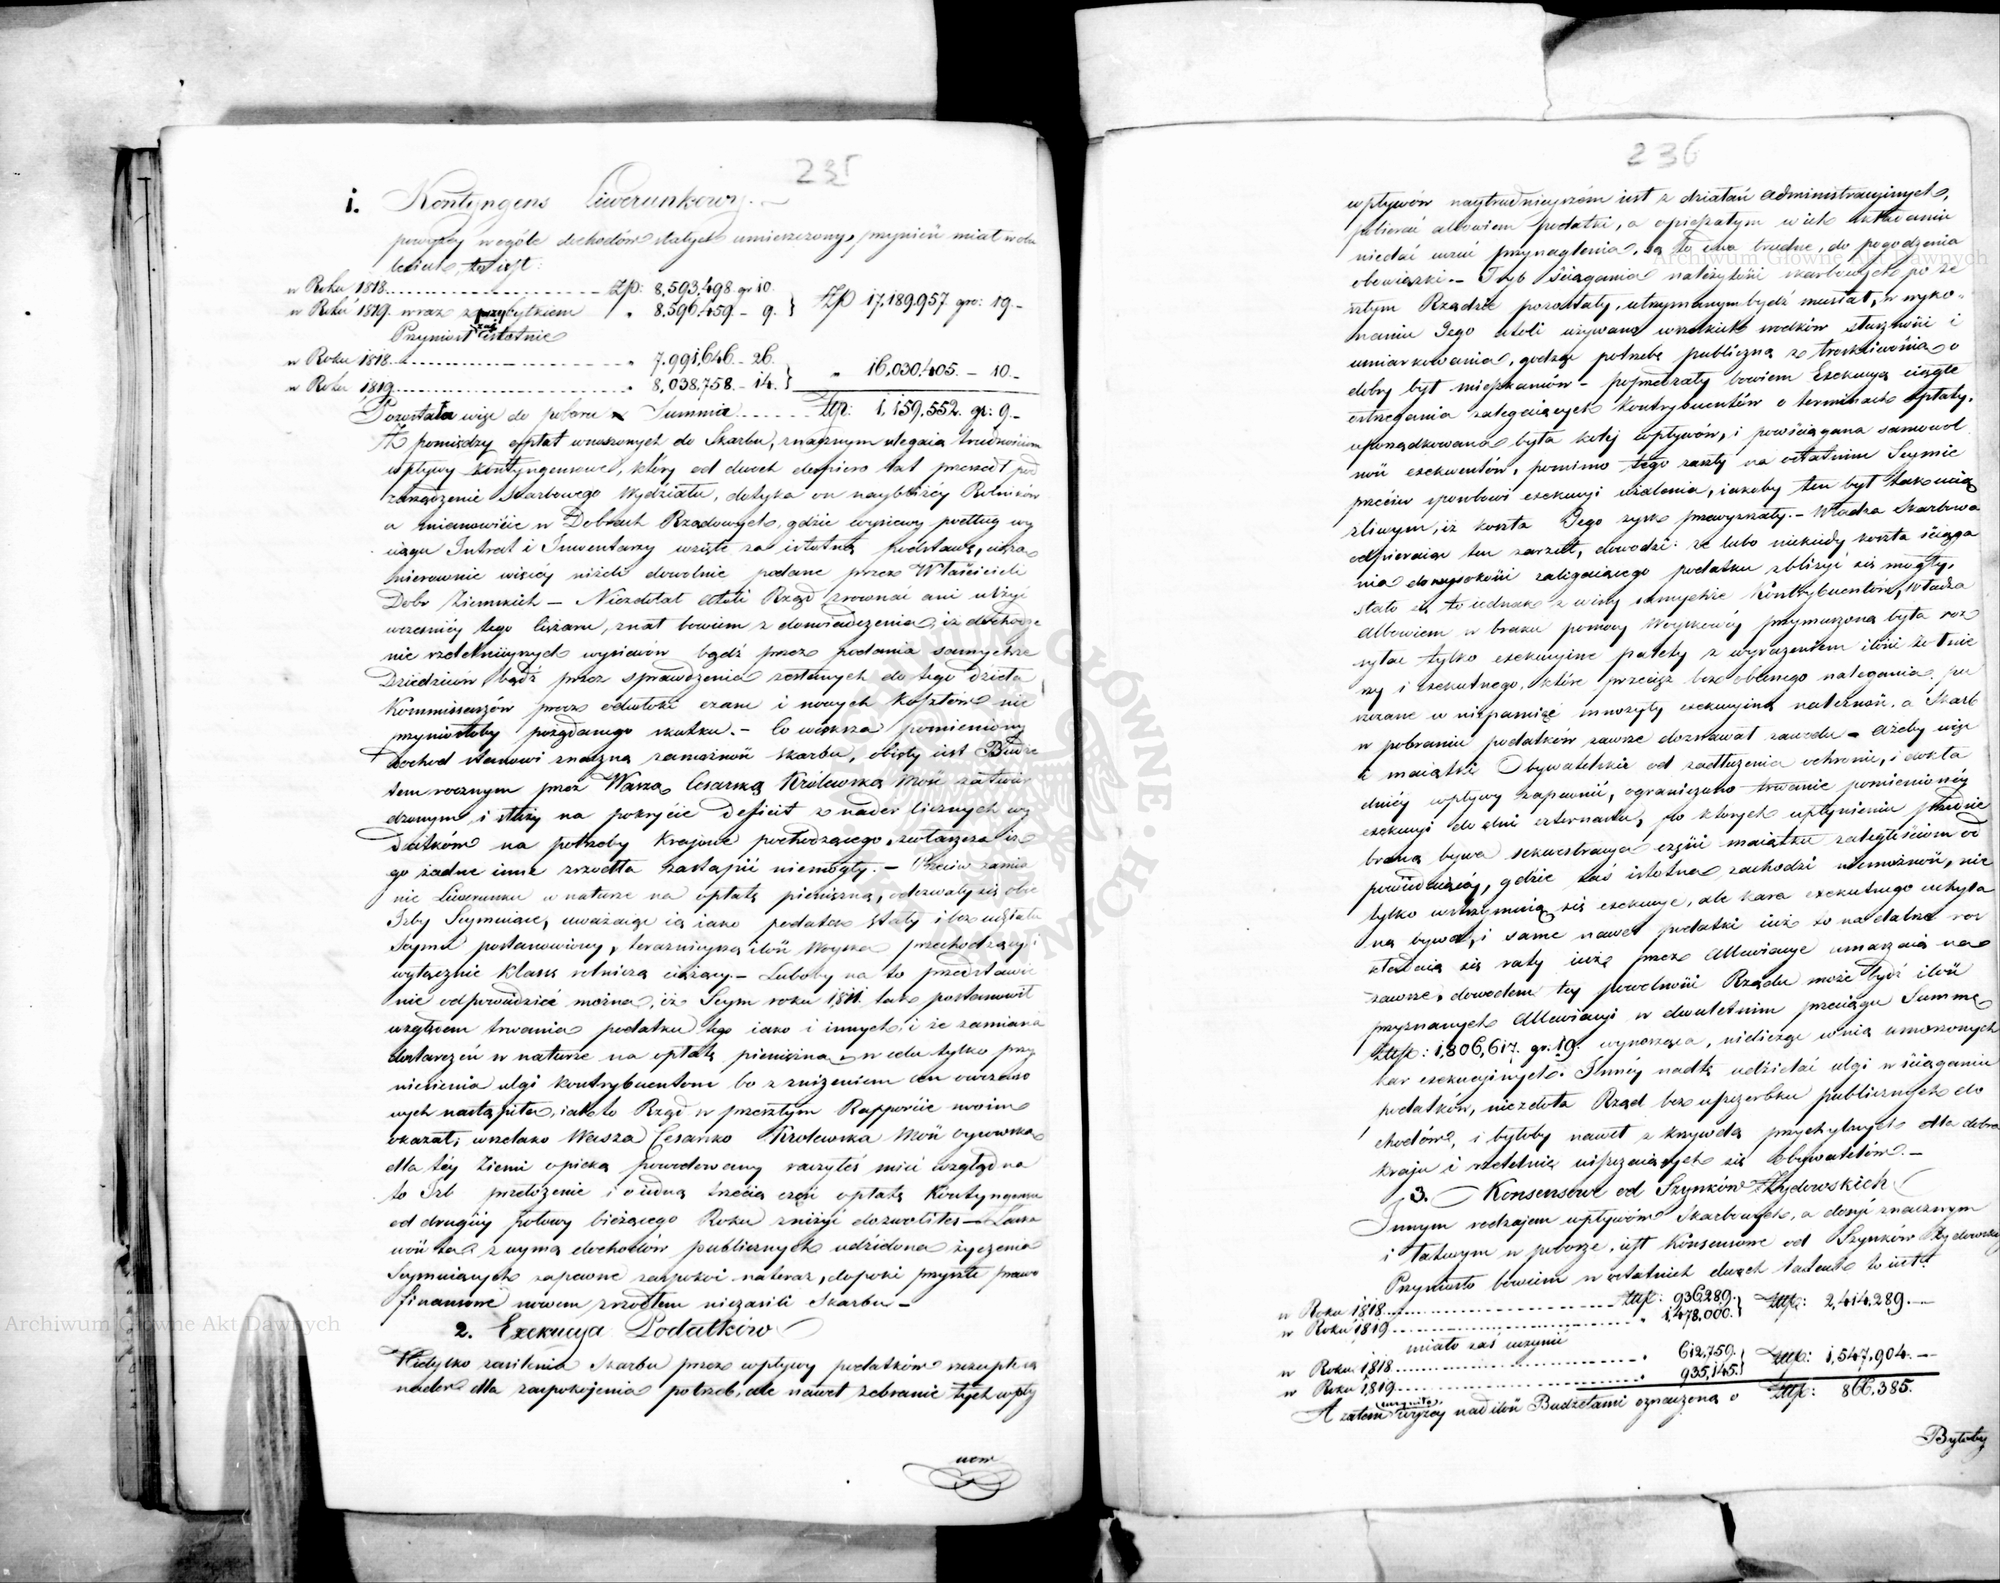 235
i. Kontyngens Liwerunkowy. —
powyżey wogóle dochodów stałych umieszczony, przynieść miał w dwu
leciu, to iest:
w Roku 1818 Złp: 8,593,498 gr 10.
w Roku 1819 wraz z przybytkiem " 8.596.459 - 9. } Złp 17,189,957 gro: 19 -
Przyniósł zaś istotnie
w Roku 1818 " 7.991,646 - 26.
w Roku 1819 " 8,038,758. - 14. } " 16,030,405. - 10 -
Pozostała więc do poboru Summa Złp: 1,159,552. gr: 9 -
Z pomiędzy opłat wnoszonych do Skarbu, znacznym ulegaią trudnościom
wpływy kontyngensowe, który od dwóch dopiero lat przeszedł pod
zarządzenie Skarbowego Wydziału, dotyka on naybliżéy Rolników
a mianowicie w Dobrach Rządowych, gdzie wysiewy podług wy
ciągu Intrat i Inwentarzy wzięte za istotną podstawę, ciążą
nierównie więcéy niżeli dowolnie podane przez Właścicieli
Dobr Ziemskich — Niezdołał atoli Rząd zrównać ani ulżyć
wcześniéy tego Ciężaru, znał bowiem z doświadczenia, iż dochodze
nie rzetelnieyszych wysiewów bądź przez podania samychże
Dziedziców bądź przez sprawdzenia zesłanych do tego dzieła
Kommissarzów przez odwłokę czasu i nowych kosztów nie
przyniosłoby pożądanego skutku. — Co większa pomieniony
Dochod stanowi znaczną zamożność skarbu, obięty iest Budże
tem rocznym przez Waszą Cesarską Królewską Mość zatwier
dzonym i służy na pokrycie deficit z nader licznych wy
datków na potrzeby Kraiowe pochodzącego, zwłaszcza iż
go żadne inne zrzodła zastąpić niemogły. — Przeciw zamia
nie Liwerunku w naturze na opłatę pieniężną, odezwały się obie
Izby Seymuiące, uważaiąc ią iako podatek stały i bez udziału
Seymu postanowiony, terażnieyszą ilość Woyska przechodzący i
wyłącznie klassę rolniczą ciążący. — Luboby na to przedstawie
nie odpowiedzieć można, iż Seym roku 1811. tak postanowił
względem trwania podatku tego iako i innych, i że zamiana
dostarczeń w naturze na opłatę pieniężną w celu tylko przy
niesienia ulgi kontrybuentom bo z zniżeniem cen owczaso
wych nastąpiła, iak to Rząd w przeszłym Rapporcie swoim
okazał, wszelako Wasza Cesarsko Królewska Mość oycowską
dla téy Ziemi opieką powodowany raczyłeś mieć wzgląd na
to Izb przełożenie i o iedną trzecią część opłatę Kontyngensu
od drugiéy połowy bieżącego Roku zniżyć dozwoliłeś —
ność ta z uymą dochodów publicznych udzielona życzenia
Seymuiących zapewne zaspokoi nateraz, dopoki przyszłe prawo
finansowe nowem zrzodłem niezasili Skarbu —
2. Exekucya Podatków
Nietylko zasilenie Skarbu przez wpływy podatków
nader dla zaspokojenia potrzeb, ale nawet zebranie tych wpły
wów
236
wpływów naytrudnieyszém iest z działań administracyinych,
pobierać albowiem podatki, a opieszałym w ich składaniu
niedać uczuć przynaglenia, są to dwa trudne, do pogodzenia
obowiązki. — Tryb ściągania należytości skarbowych po ze
szłym Rządzie pozostały, utrzymanym bydź musiał, w wyko-
naniu Jego atoli używano wszelkich srodków słuszności i
umiarkowania, godząc potrzebę publiczną z troskliwością o
dobry byt mieszkańców — poprzedzały bowiem Exekucyą ciągłe
ostrzegania zalegaiących kontrybuentów o terminach opłaty,
uporządkowana była koléy wpływów, i powściągana samowol
ność exekwentów, pomimo tego zaszły na ostatnim Seymie
przeciw sposobowi exekucyi użalenia, iakoby ten był tak ucią
żliwym, iż koszta Jego zysk przewyższały. — Władza Skarbowa
odpieraiąc ten zarzut, dowodzi: że lubo niekiedy koszta ściąga
nia do wysokości zalegaiącego podatku zbliżyć się mogły,
stało się to iednak z winy samychże Kontrybuentów, Władza
Albowiem w braku pomocy Woyskowéy przymuszoną była roz
syłać tylko exekucyine palety z wyrażeniem ilości złotnie
ry i exekutnego, które przecież bez obecnego nalegania pu
szczane w niepamięć mnożyły exekucyiną należność, a Skarb
w pobraniu podatków zawsze doznawał zawodu — Ażeby więc
i maiątki Obywatelskie od zadłużenia ochronić, i dokła
dniéy wpływy zapewnić, ograniczono trwanie pomienionéy
exekucyi do dni czternastu, po ktorych upłynieniu
braną bywa sekwestracya części maiątku zaległościom od
powiedniéy, gdzie zaś istotna zachodzi niemożność, nie
tylko wstrzymuią się exekucye, ale kara exekutnego uchyla
ną bywa, i same nawet podatki iuż to na dalsze roz
kładaią się raty iuż przez Allewiacye umarzaią na
zawsze, dowodem téy powolności Rządu może bydź ilość
przyznanych Allewiacyi w dwuletnim przeciągu Summę
Złp: 1,806,617. gr: 19. wynosząca, nieliczac w nią umorzonych
kar exekucyinych. Innéy nadtą udzielać ulgi w ściąganiu
podatków, niezdoła Rząd bez uszczerbku publicznych do
chodów, i byłoby nawet z krzywdą przychylnych dla dobra
kraju i rzetelnie uiszczaiących się obywatelów. —
3. Konsensowe od Szynków Żydowskich
Innym rodzajem wpływów Skarbowych, a dosyć znacznym
i łatwym w poborze, iest Konsensowe od Szynków Żydowskich
Przyniosło bowiem w ostatnich dwuch latach to iest:
w Roku 1818 Złp: 936,289.
w Roku 1819 " 1,478,000. } Złp: 2,414,289. —
miało zaś uczynić
w Roku 1818 " 612,759.
w Roku 1819 " 935,145. } Złp: 1,547,904. —
A zatem uczyniło wyzey nad ilość Budżetami oznaczoną o Złp: 866,385.
Byłoby
Archiwum Główne Akt Dawnych
Archiwum Główne Akt Dawnych